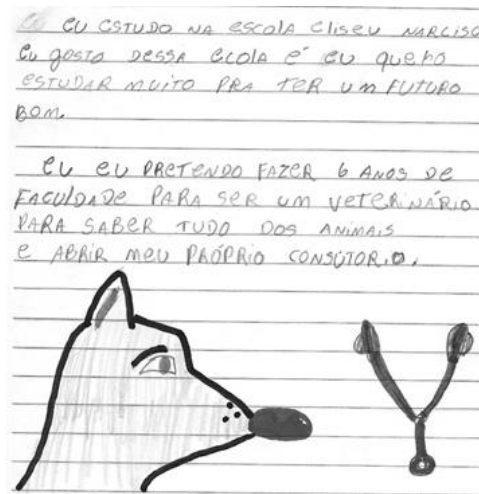 EU EU ESTUDO NA ESCOLA ELISEU NARCISO
EU GOSTO DESSA ECOLA É EU QUERO
ESTUDAR MUITO PRA TER UM FUTURO
BOM.
EU EU PRETENDO FAZER 6 ANOS DE
FACULDADE PARA SER UM VETERINÁRIO
PARA SABER TUDO DOS ANIMAIS
E ABRIR MEU PRÓPRIO CONSÚTORIO.